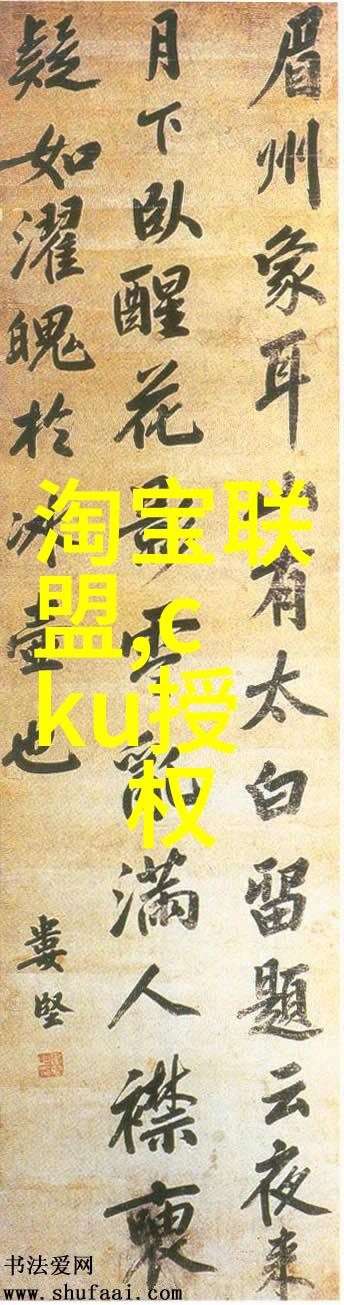 眉州象耳山有太白留题云夜来
月下卧醒花影零乱满人襟
疑如濯魄於冰壶也
娄坚
淘宝联
盟,c
ku授
权
书法爱网
www.shufaai.com